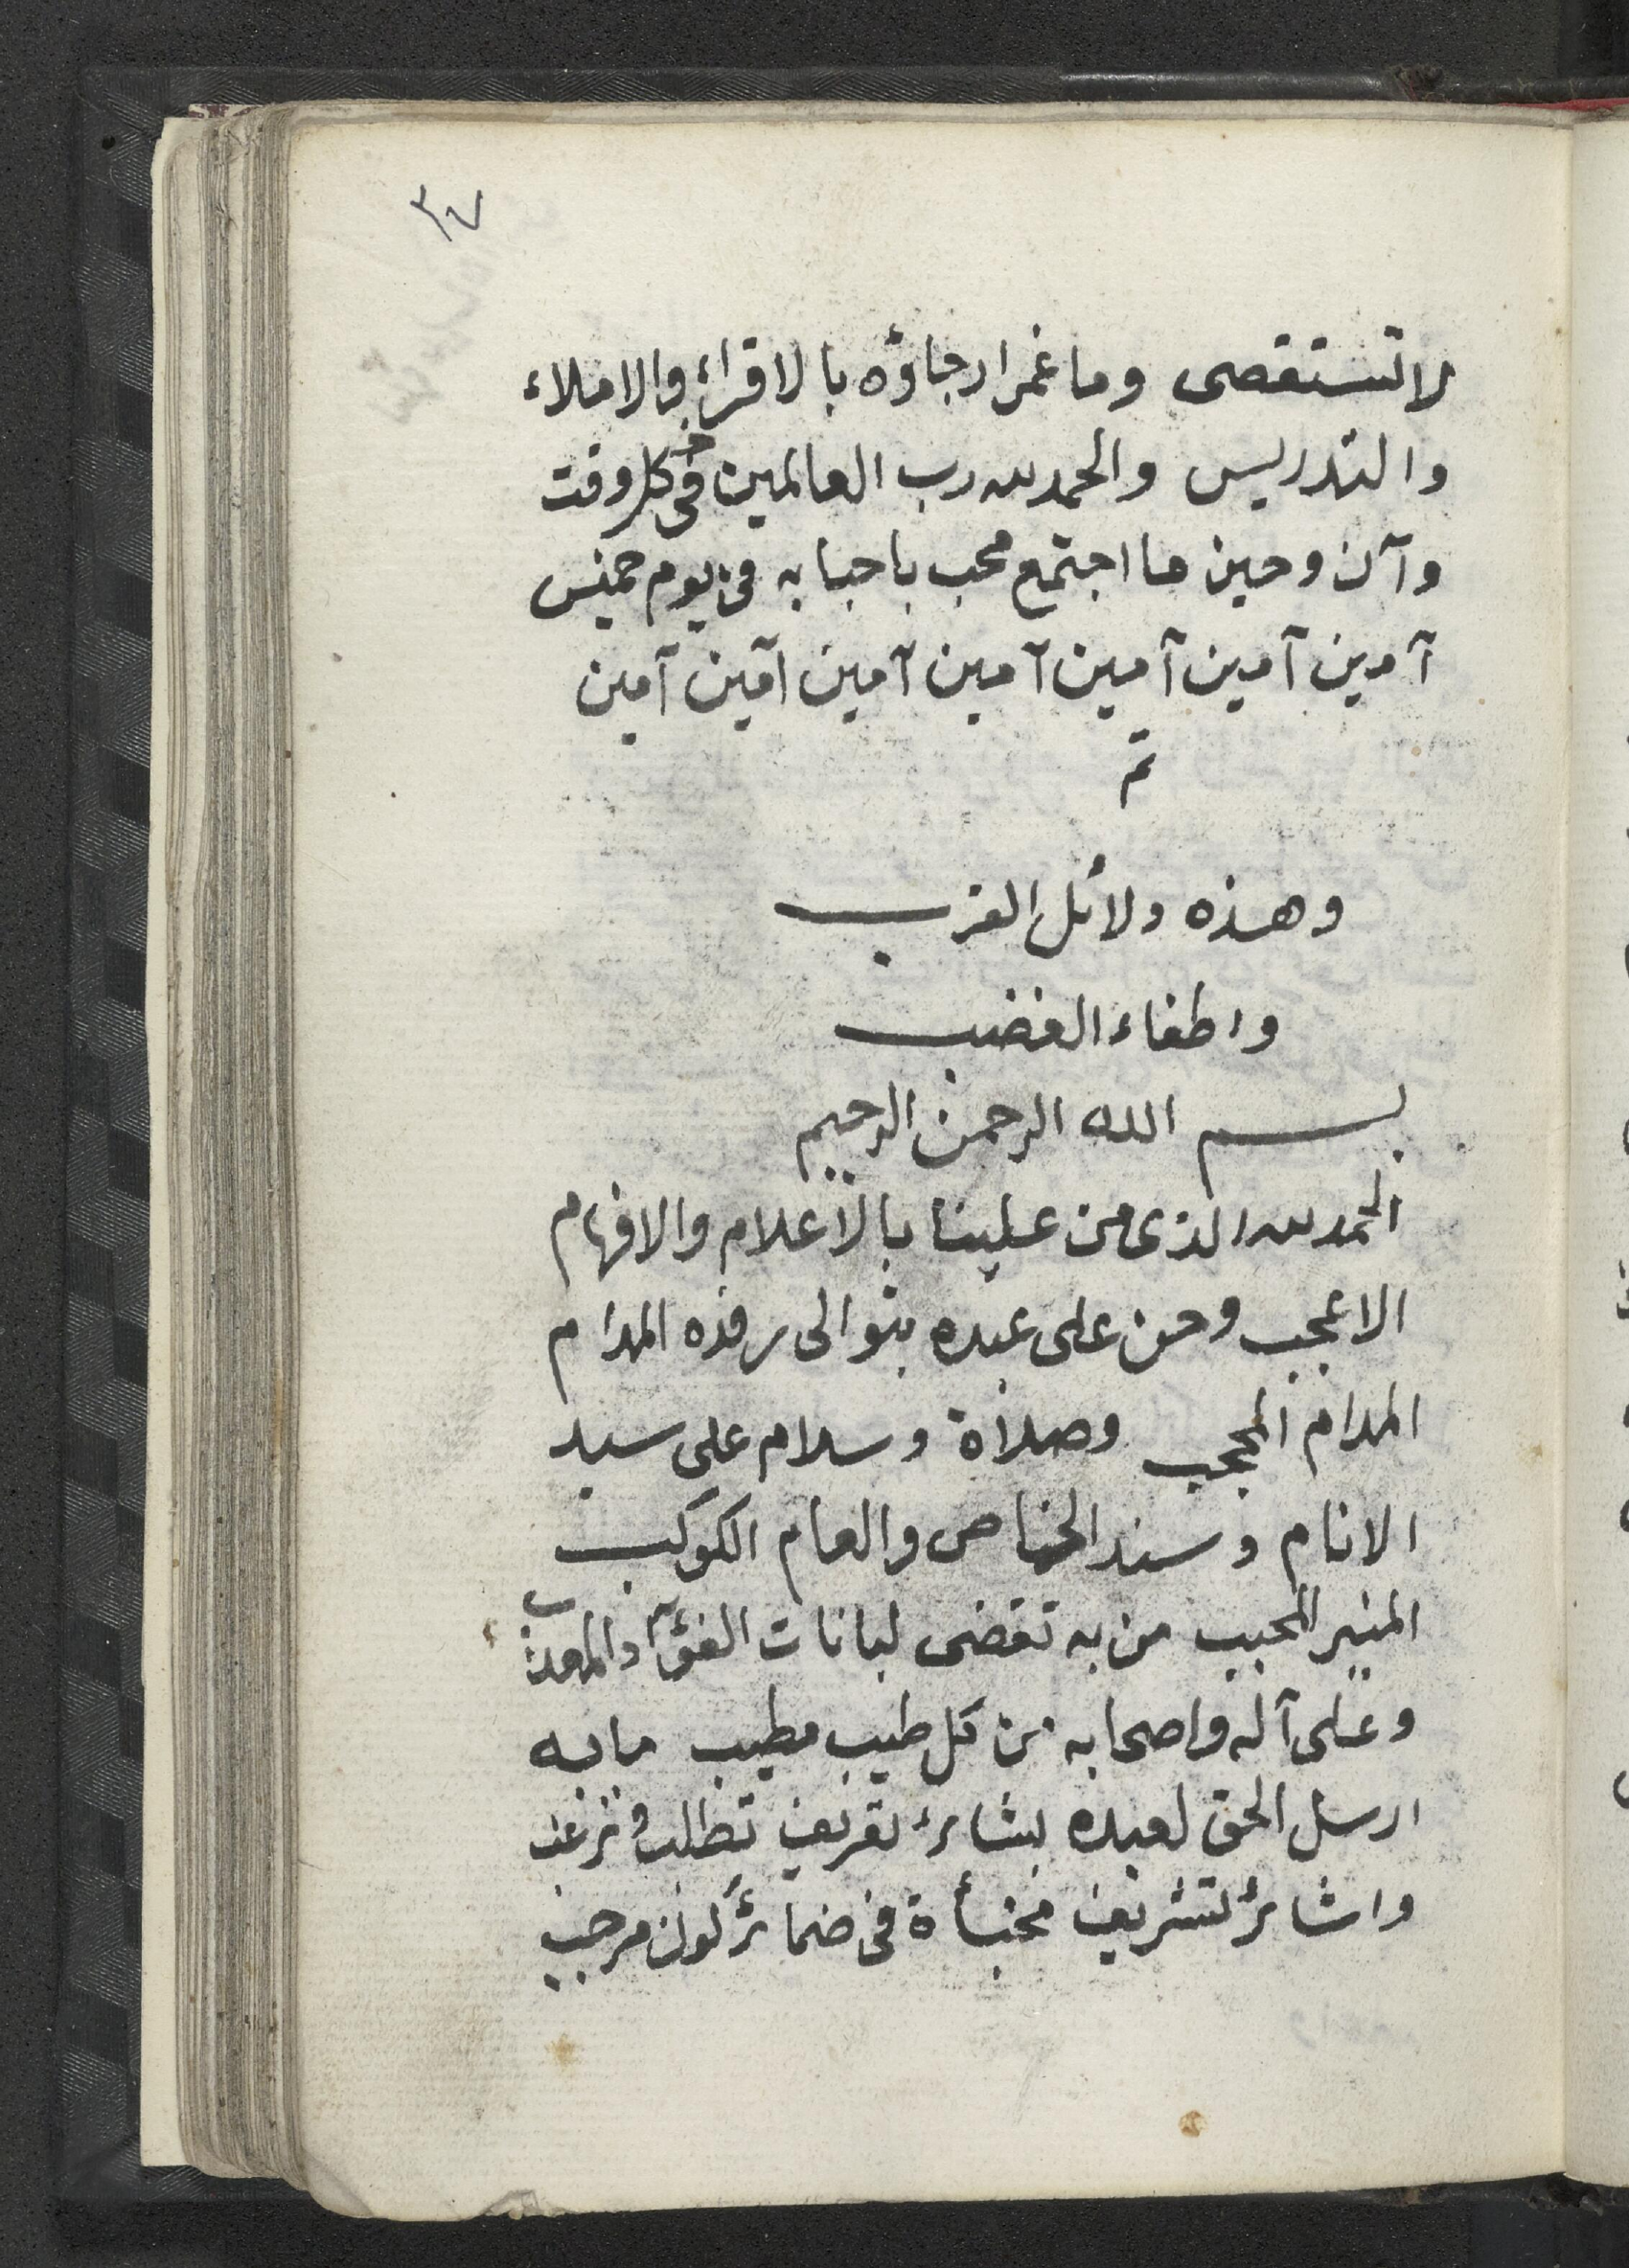 ٣٧
لا تستقصى وما غمر ارجاؤه بالاقراء والاملاء
والتدريس والحمد لله رب العالمين فى كل وقت
وآن وحين ما اجتمع محب باحبابه فى يوم خميس
آمين آمين آمين آمين آمين آمين آمين
تم
وهذه ولائل القرب
واطفاء الغضب
بسم الله الرحمن الرحيم
الحمد لله الذى من علينا بالاعلام والافهام
الاعجب وحن على عبده بتوالى رفده المدام
المدام المحجب وصلاة وسلام على سيد
الانام وسند الخاص والعام الكوكب
المنير المحبب من به تقضى لبانات الفؤاد المعذب
وعلى آله واصحابه من كل طيب مطيب ما به
ارسل الحق لعبده بشائر تعريف تطلب وترغب
واشائر لتشريف مخبأة فى ضمائر كون مرجب